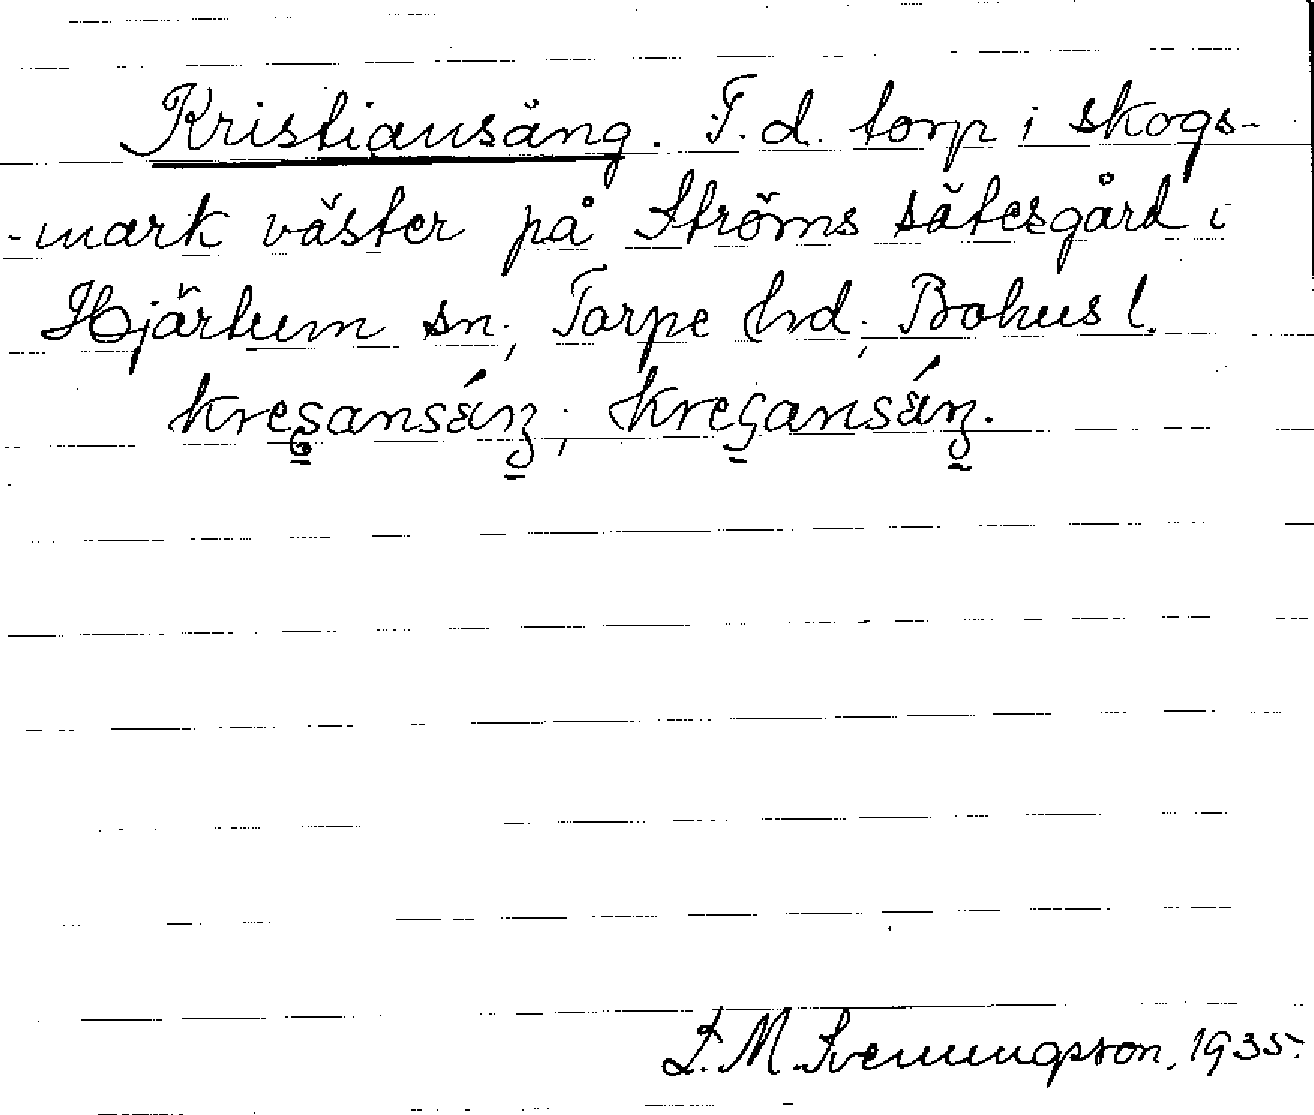 Kristiansäng. F. d. torp i skogs-
-mark väster på Ströms sätesgård i
Hjärtum sn; Torpe hd; Bohus l.
kreşansáŋ; kreşansáŋ.
F. M. Svenungsson, 1935.